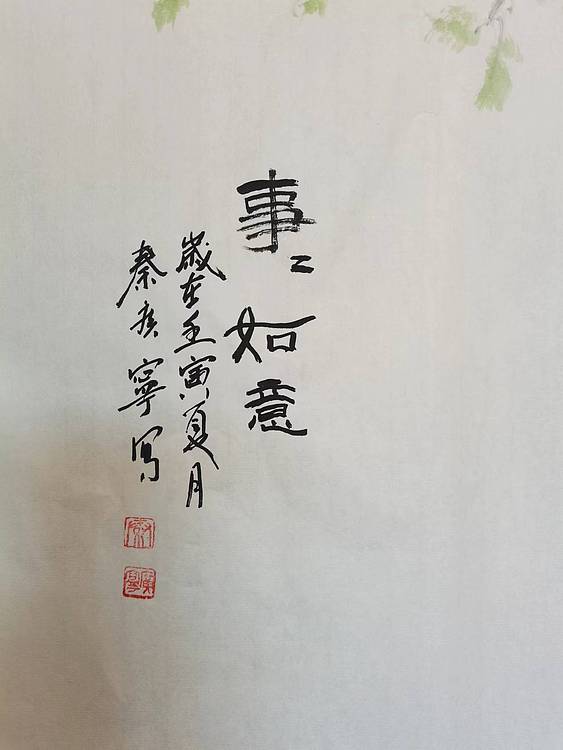 事〻如意
歲在壬寅夏月
秦寧寫